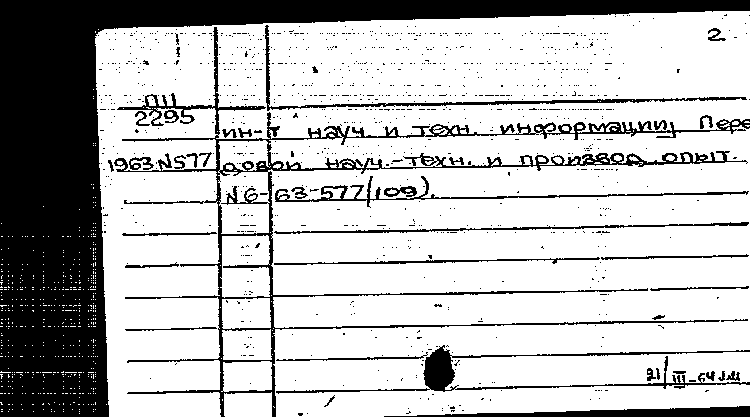 2
П11
2295
ин-т науч. и техн. информации; Пере
1963 N577 довой науч.-техн. и производ. опыт.
N 6-63-577/109).
21/III-64